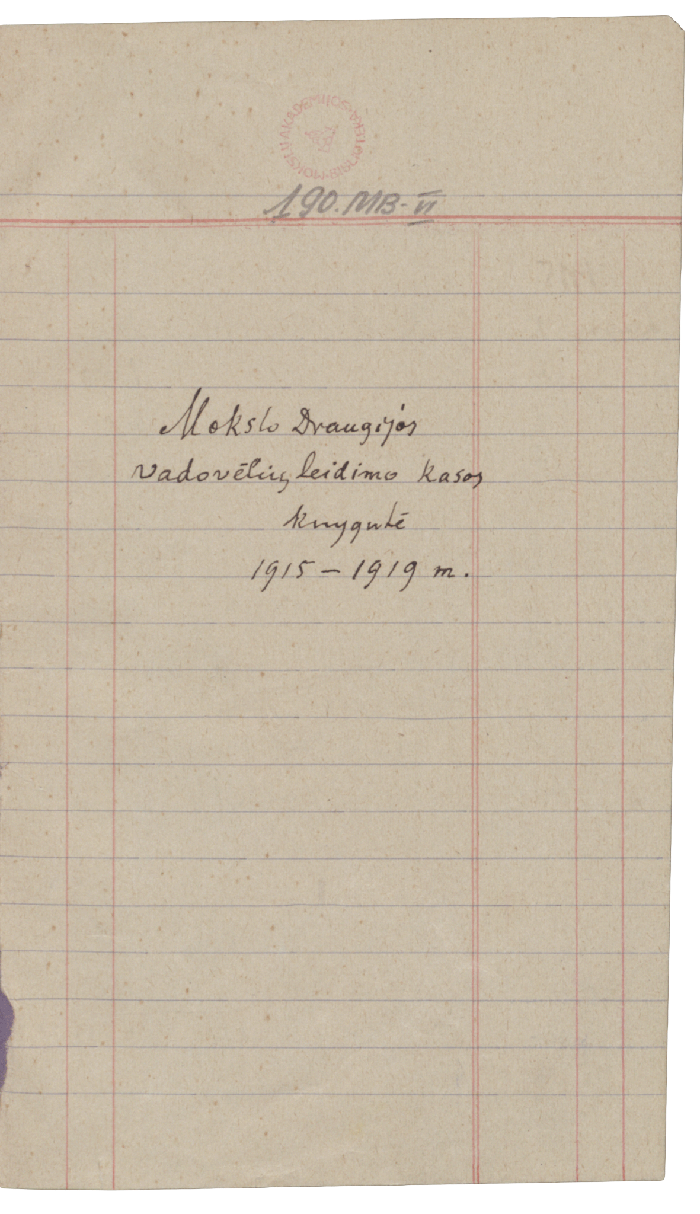 190.MB-VI
Mokslo Draugijos
vadovėlių leidimo kasos
knygutė
1915 – 1919 m.